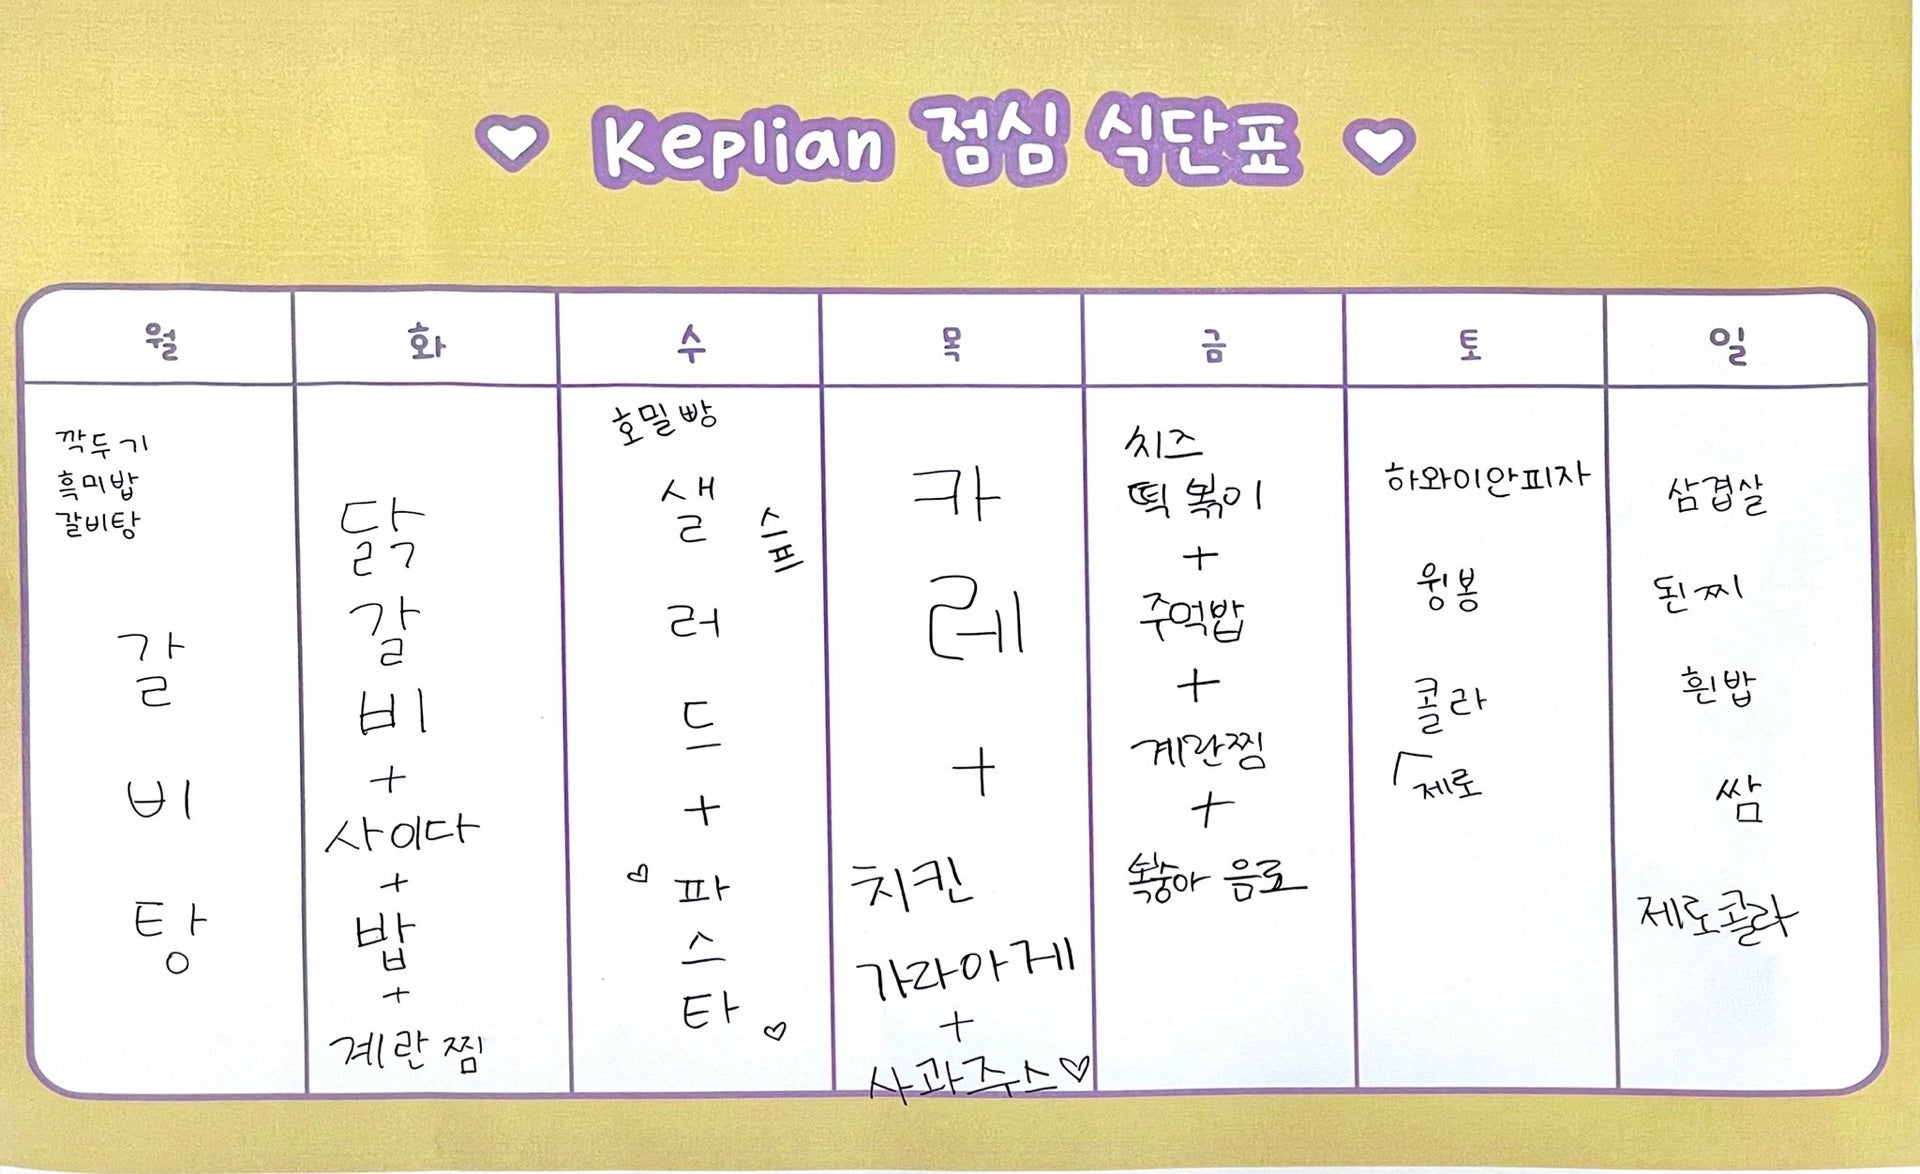 Keplian 점심 식단표
월
화
수
목
금
토
일
깍두기
흑미밥
갈비탕
갈
비
탕
닭
갈
비
+
사이다
+
밥
+
계란찜
호밀빵
샐
러
드
스프
+
파
스
타
카
레
+
치킨
가라아게
+
사과주스
치즈
떡볶이
+
주먹밥
+
계란찜
+
복숭아 음료
하와이안피자
윙봉
콜라
제로
삼겹살
된찌
흰밥
쌈
제로콜라